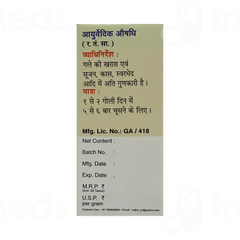 आयुर्वेदिक औषधि
( र. तं. सा. )
व्याधिनिर्देश :
गले की खराश एवं
सूजन, कास, स्वरभेद
आदि में अति गुणकारी है।
मात्रा :
१ से २ गोली दिन में
५ से ६ बार चूसने के लिए।
Mfg. Lic. No.: GA / 418
Net Content :
Batch No. :
Mfg. Date :
Exp. Date :
M.R.P. ₹
U.S.P. ₹
per gram